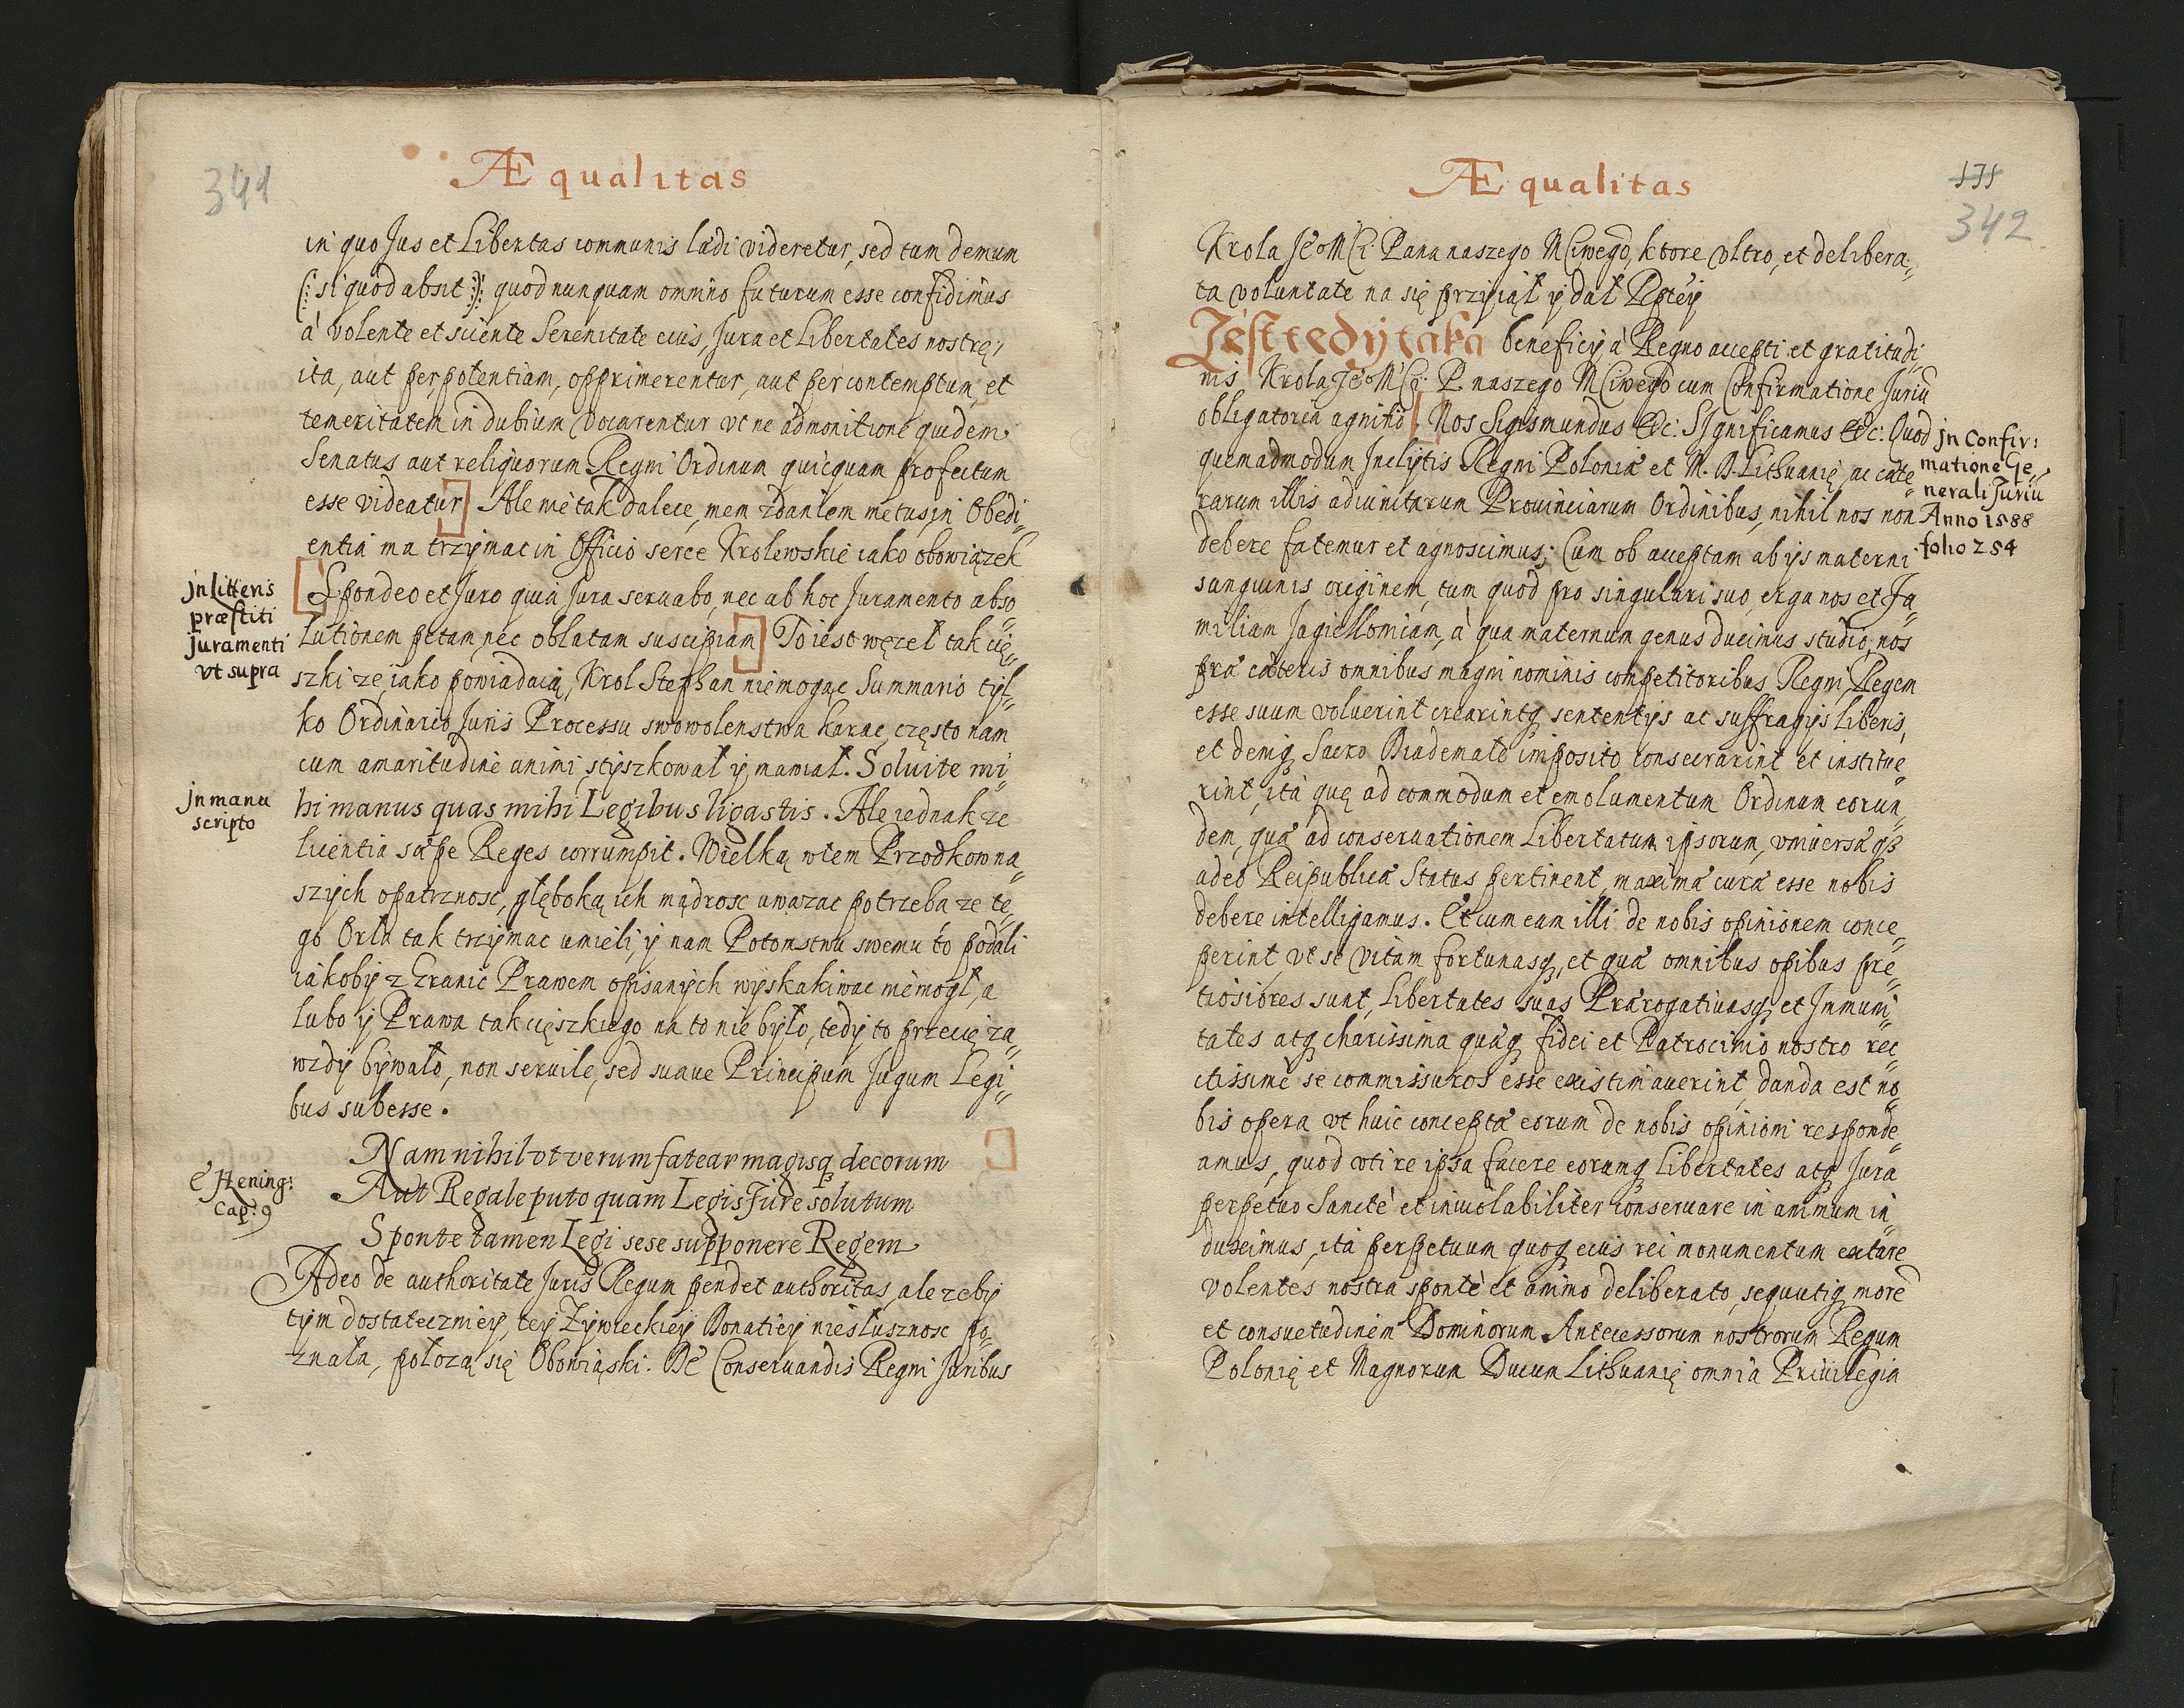 341
Æqualitas
in quo Jus et Libertas communis lædi videretur, sed tum demum
(: si quod absit :): quod nunquam omnino futurum esse confidimus
à volente et sciente Serenitate eius, Jura et Libertates nostrę,
ita, aut per potentiam, opprimerentur, aut per contemptum, et
temeritatem in dubium vocarentur vt ne admonitione quidem
Senatus aut reliquorum Regni Ordinum quicquam profectum
esse videatur] Ale nie tak dalece, mem zdaniem metus in Obedi„
entia ma trzymac in Officio serce Krolewskie iako obowiązek
[Spondeo et Juro quia Jura seruabo, nec ab hoc Juramento abso„
lutionem petam, nec oblatam suscipiam] To iest węzeł tak cię„
szki ze, iako powiadaią, Krol Stephan niemogąc Summario tyl„
ko Ordinario Juris Processu swowolenstwa karac, często nam
cum amaritudine animi styszkował y mawiał. Soluite mi„
hi manus quas mihi Legibus ligastis. Ale iednak ze
licentia sæpe Reges corrumpit. Wielką wtem Przodkow na„
szych opatrznosc, głęboką ich mądrosc uwazac potrzeba ze te„
go Orła tak trzymac umieli, y nam Potomstwu swemu to podali
iakoby z Granic Prawem opisanych wyskakiwac niemogł, a
lubo y Prawa tak cięszkiego na to nie było, tedy to przecię za„
wzdy bywało, non seruile, sed suaue Principum Jugum Legi„
bus subesse.
Nam nihil vt verum fatear magisq decorum
Aut Regale puto quam Legis Jure solutum
Sponte tamen Legi sese supponere Regem
Adeo de authoritate Juris Regum pendet authoritas, ale zeby
tym dostateczniey, tey Zywieckiey Donatiey niesłusznosc po„
znała, połozą się Obowiąski. De Conseruandis Regni Juribus
Jn litteris
præstiti
Juramenti
vt supra
Jn manu
scripto
è Hening:
Cap: 9
Æqualitas
171
342
Krola Je°MCi Pana naszego MCiwego, ktore vltro, et delibera„
ta voluntate na się przyiął y dał Rptey
Jest tedy taka beneficy à Regno accepti et gratitudi„
nis Krola Je°MCi P. naszego MCiwego cum Confirmatione Juriu
obligatoria agnitio [Nos Sigismundus &c: Significamus &c: Quod
quemadmodum Inclytis Regni Poloniæ et M. D. Lithuanię, ac cæte„
rarum illis adiunctarum Prouinciarum Ordinibus, nihil nos non
debere fatemur et agnoscimus; Cum ob acceptam ab ijs materni
sanguinis originem, tum quod pro singulari suo, erga nos et Fa„
miliam Jagiellomiam, à qua maternum genus ducimus studio, nos
præ cæteris omnibus magni nominis competitoribus Regni, Regem
esse suum voluerint crearintq sententijs ac suffragijs liberis,
et deniq Sacro Diademate imposito consecrarint et institue„
rint, ita quę ad commodum et emolumentum Ordinum eorun„
dem, quæ ad conseruationem Libertatum ipsorum, vniuersæ qz
adeo Reipublicæ Status pertinent, maximæ curæ esse nobis
debere intelligamus. Et cum eam illi de nobis opinionem conce„
perint, vt se vitam fortunasq, et quæ omnibus opibus pre„
tiosiores sunt, libertates suas Prærogatiuasq et Jmmuni„
tates atq charissima quæq fidei et Patrocinio nostro rec„
tissimè se commissuros esse existimauerint, danda est no„
bis opera vt huic conceptæ eorum de nobis opinioni responde„
amus, quod vti re ipsa facere eorunq libertates atq Jura
perpetuo Sanctè et inuiolabiliter conseruare in animum in„
duximus, ita perpetuum quoq eius rei monumentum extare
volentes nostra spontè et animo deliberato, sequutiq more
et consuetudinem Dominorum Antecessorum nostrorum Regum
Polonię et Magnorum Ducum Lithuanię omnia Priuilegia
Jn Confir:
matione Ge„
nerali Juriu
Anno 1588
folio 254